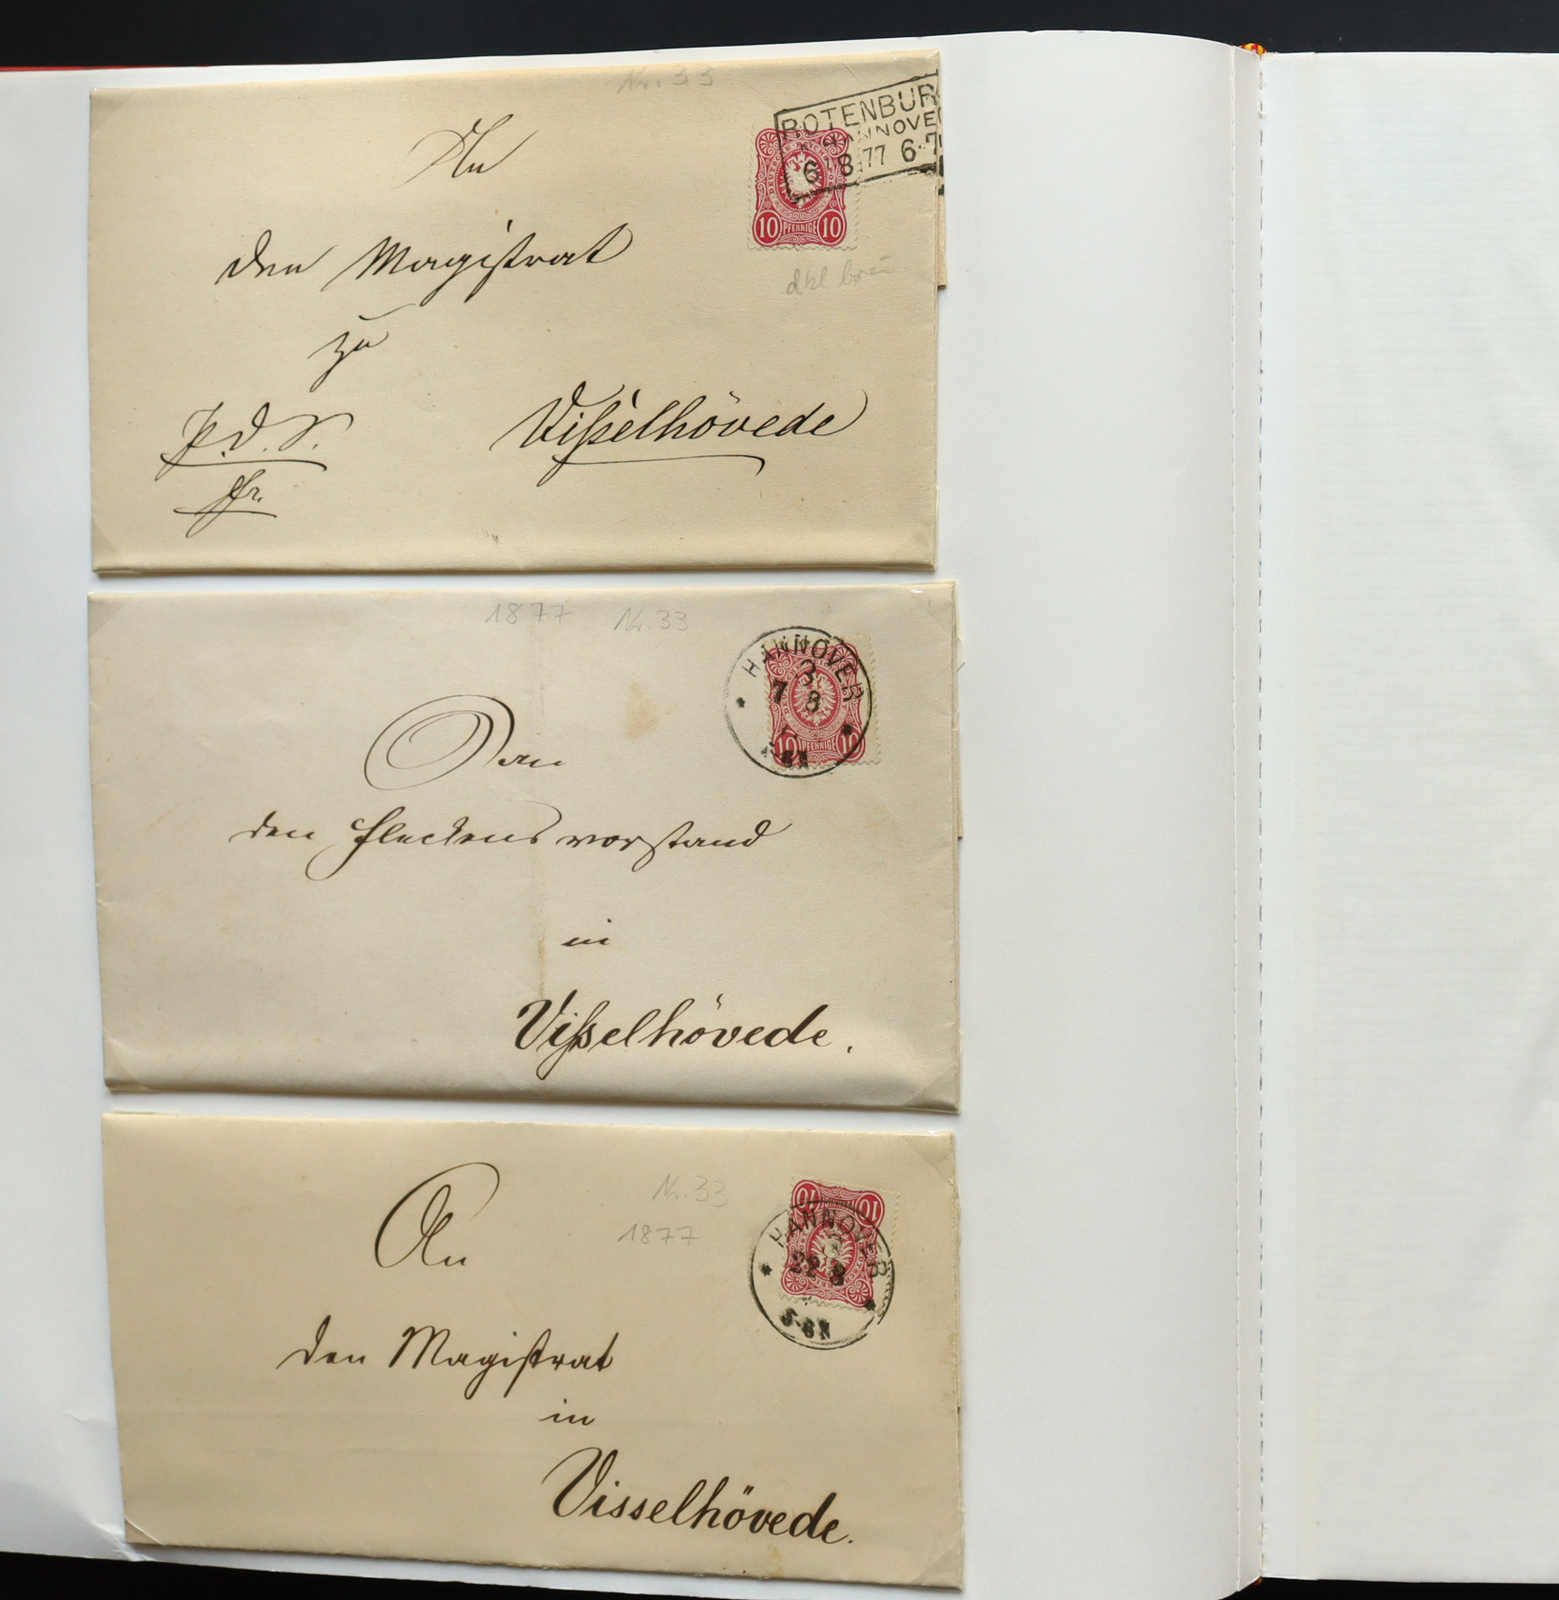 Nr. 33
ROTENBUR
HANNOVE
6 8 77 6-7
10 PFENNIGE 10
An
den Magistrat
zu
Vißelhövede
P. D. S.
fr.
dkl
1877 Nr. 33
HANNOVER
3
7 8
10 PFENNIGE 10
An
den Fleckensvorstand
in
Vißelhövede.
Nr. 33
1877
10 PFENNIGE 10
HANNOVER
3
22 8
5-6N
An
den Magistrat
in
Visselhövede.